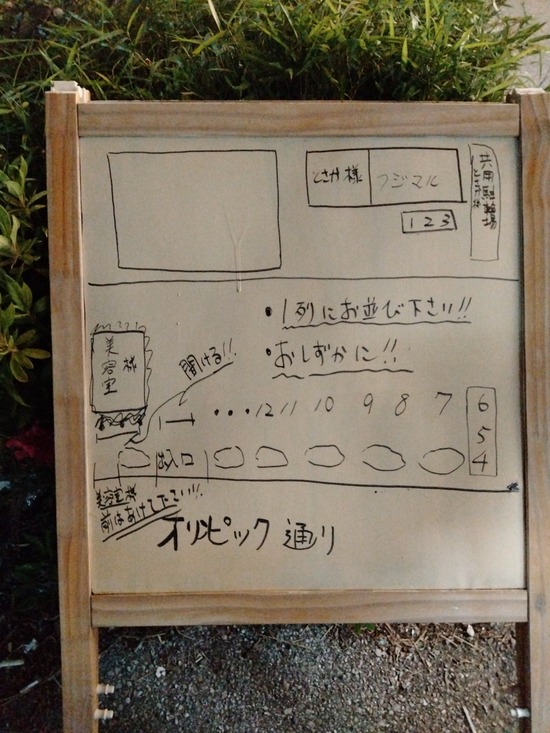 とさか様
フジマル
共用駐輪場
とさか様
1 2 3
・1列にお並び下さい!!
・おしずかに!!
美容室様
開ける!!
・・・12 11 10 9 8 7
6
5
4
入口
美容室様
前はあけて下さい!!
オリンピック通り